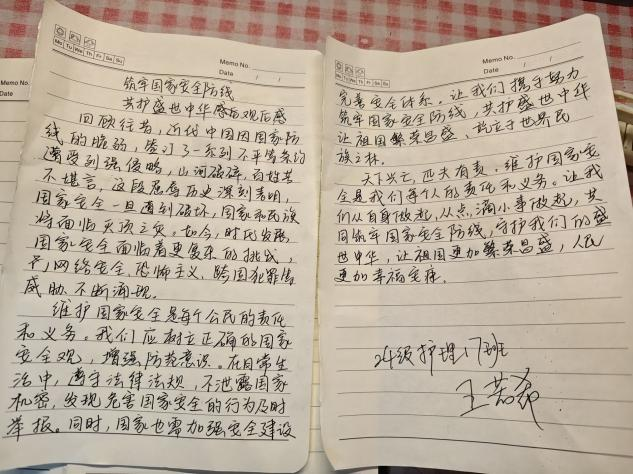 Mo Tu We Th Fr Sa Su
Memo No.
Date / /
筑牢国家安全防线
共护盛世中华 观后感
回顾往昔，近代中国因国家防
线的脆弱，签订了一系列不平等条约
遭受列强侵略，山河破碎，百姓苦
不堪言，这段屈辱历史深刻表明，
国家安全一旦遭到破坏，国家和民族
将面临灭顶之灾。如今，时代发展，
国家安全面临着更复杂的挑战，
网络安全、恐怖主义、跨国犯罪等
威胁不断涌现。
维护国家安全是每个公民的责任
和义务。我们应树立正确的国家
安全观，增强防范意识。在日常生
活中，遵守法律法规，不泄露国家
机密，发现危害国家安全的行为及时
举报。同时，国家也需加强安全建设
Mo Tu We Th Fr Sa Su
Memo No.
Date / /
完善安全体系。让我们携手努力
筑牢国家安全防线，共护盛世中华
让祖国繁荣昌盛，屹立于世界民
族之林。
天下兴亡，匹夫有责。维护国家安
全是我们每个人的责任和义务。让我
们从自身做起，从点滴小事做起，共
同筑牢国家安全防线，守护我们的盛
世中华，让祖国更加繁荣昌盛，人民
更加幸福安康。
24级护理17班
王若
Memo No.
Date